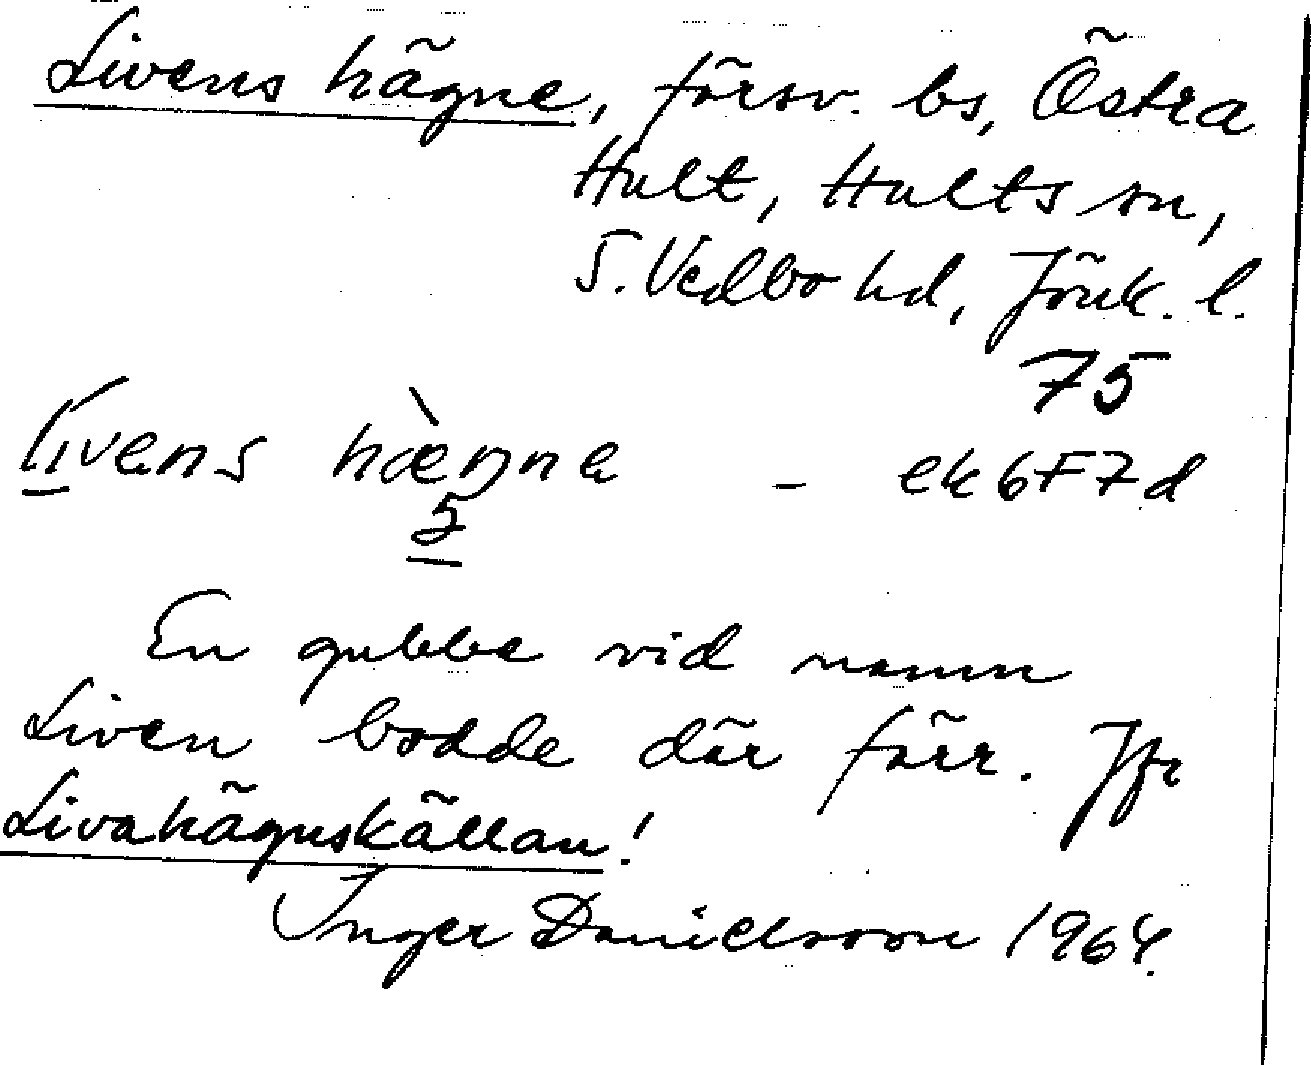 Livens hägne, försv. bs, Östra
Hult, Hults sn,
S. Vedbo hd, Jönk. l.
75
livens hæŋne - ek 6F7d
5
En gubbe vid namn
Liven bodde där förr. Jfr
Livahägnskällan!
Inger Danielsson 1964.